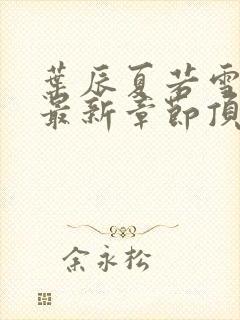 葉辰夏若雪
最新章節頂
余永松